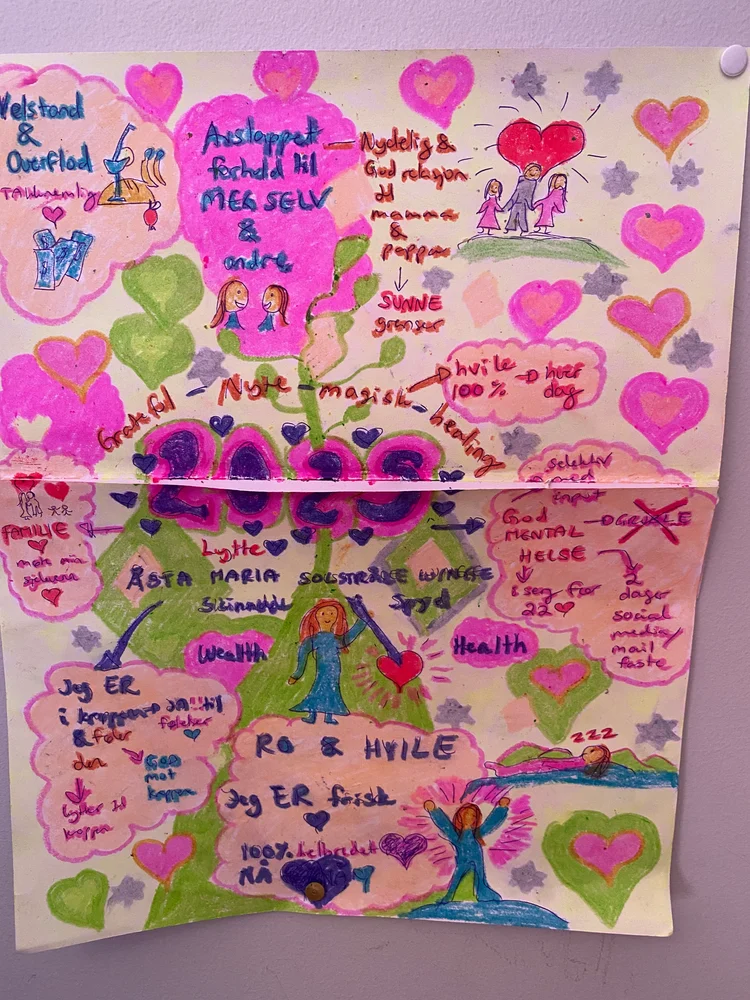 Velstand
&
Overflod
Takknemlig
Avslappet
forhold til
MEG SELV
&
andre
Nydelig &
God relasjon
til
mamma
&
pappa
SUNNE
grenser
hvile
100 %
hver
dag
Grateful - Nyte - magisk - healing
2025
FAMILIE
møte mine
selektiv
med
input
God
MENTAL
HELSE
GRUBLE
i seng før
22
2
dager
social
media/
mail
faste
Lytte
ÅSTA MARIA SOLSTRÅLE WYNGE
Skinnende
Spyd
Wealth
Health
Jeg ER
i kroppen
& føler
den
JA!! til
følelser
GOD
mot
kroppen
lytter til
kroppen
RO & HVILE
Jeg ER frisk
100% helbredet
NÅ
zzz